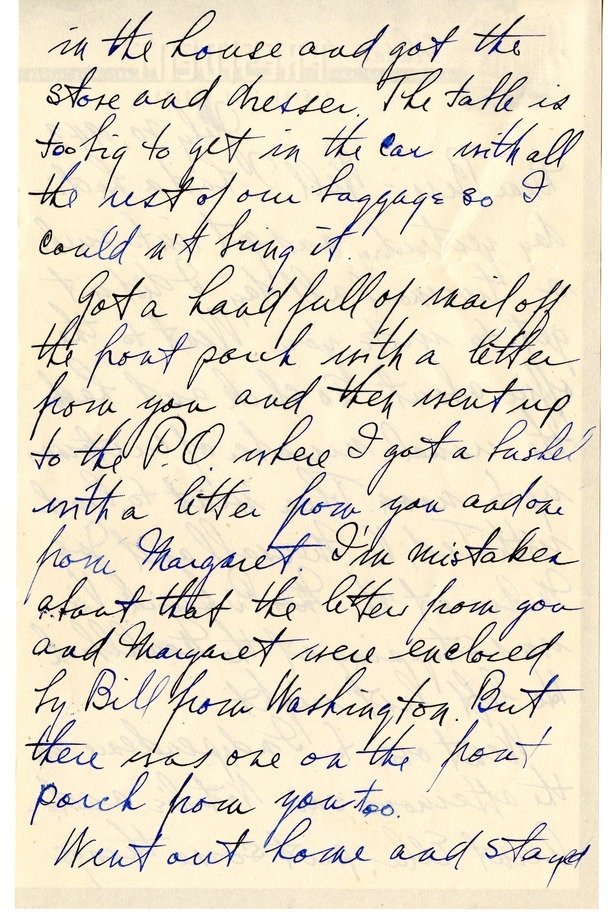 in the house and got the
stove and dresser. The table is
too big to get in the car with all
the rest of our baggage so I
could n't bring it.
Got a hand full of mail off
the front porch with a letter
from you and then went up
to the P.O. where I got a bushel
with a letter from you and one
from Margaret. I'm mistaken
about that the letter from you
and Margaret were enclosed
by Bill from Washington. But
there was one on the front
porch from you too.
Went out home and stayed